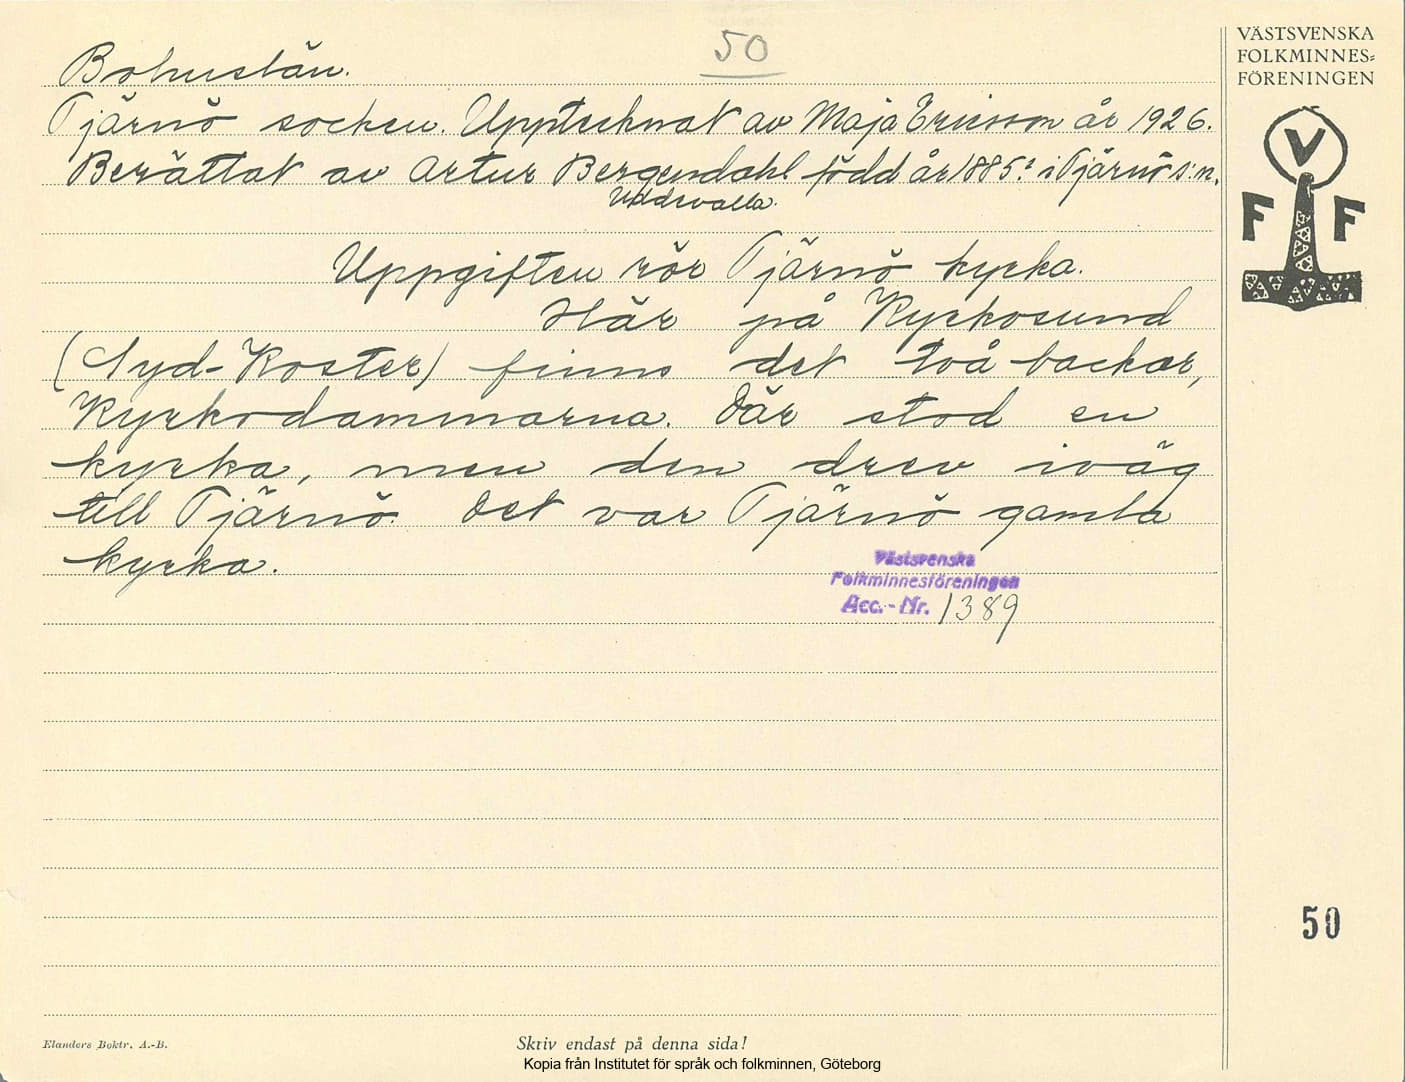 50
Bohuslän.
Tjärnö socken. Upptecknat av Maja Ericsson år 1926.
Berättat av Artur Bergendahl född år 1885? i Tjärnö s:n.
Uddevalla.
Uppgiften rör Tjärnö kyrka.
Här på Kyrkosund
(Syd-Koster) finns det två backar,
Kyrkodammarna. Där stod en
kyrka, men den drev iväg
till Tjärnö. Det var Tjärnö gamla
kyrka.
Västsvenska
Folkminnesföreningen
Acc.-Nr. 1389
VÄSTSVENSKA
FOLKMINNES=
FÖRENINGEN
V
F F
50
Elanders Boktr. A.-B.
Skriv endast på denna sida!
Kopia från Institutet för språk och folkminnen, Göteborg